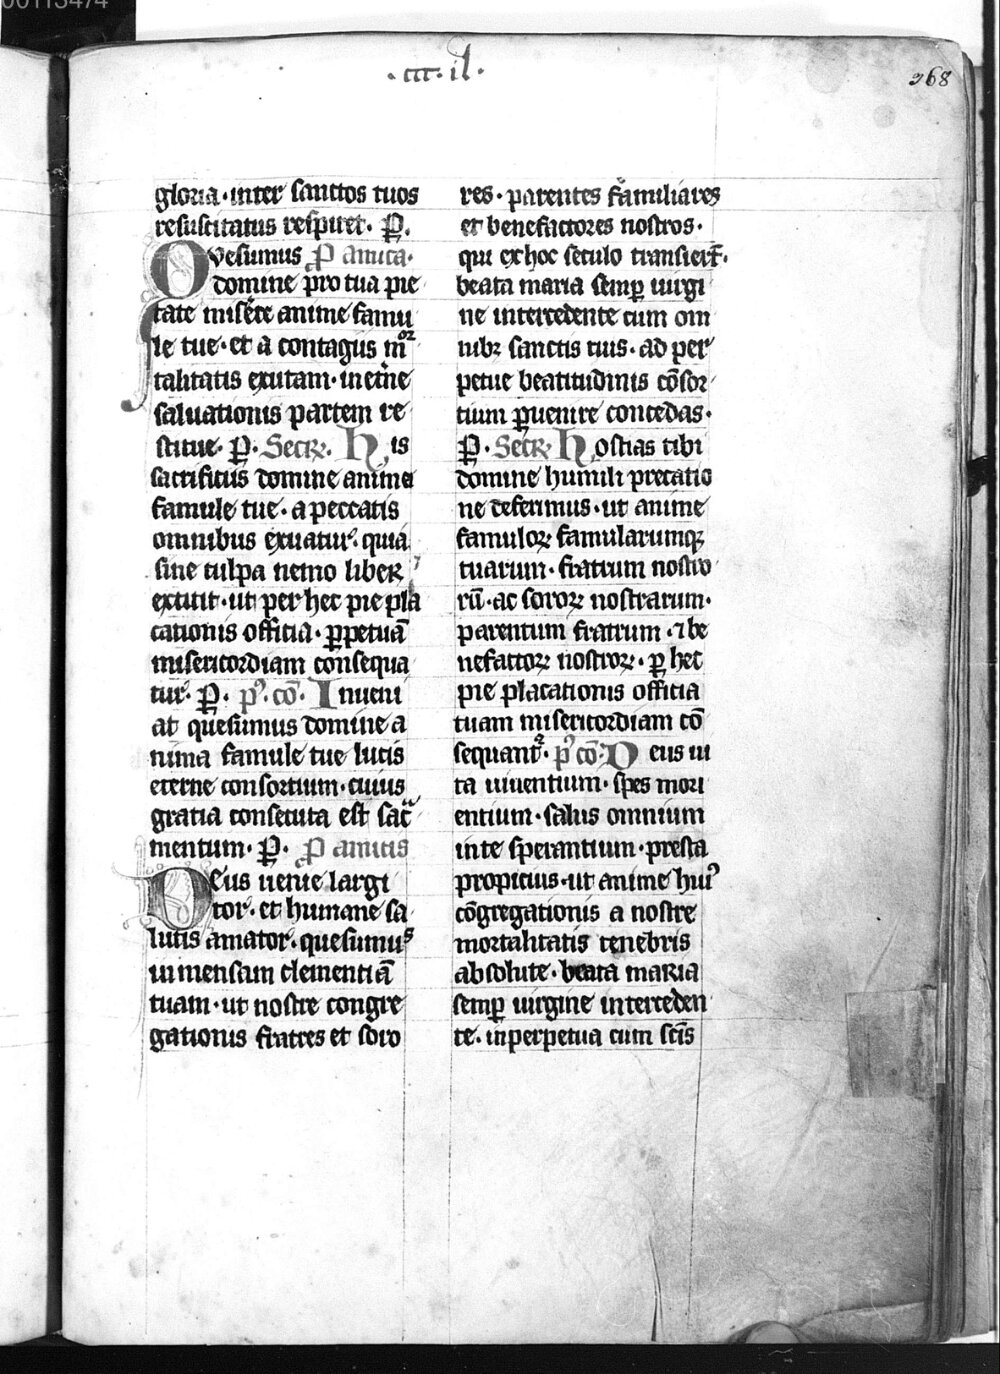 00113474
·ccc·il·
368
gloria·inter sanctos tuos
resuscitatus respiret· P̲.
Quesumus P̲ amica·
domine pro tua pie
tate miserẽ anime famu
le tue·et a contagiis mor
talitatis exutam·in etẽrne
saluationis partem re
stitue· P̲. Secr̃. His
sacrificiis domine anima
famule tue·a peccatis
omnibus exuatur̃. quia
sine culpa nemo liber
extitit·ut per hec pie pla
cationis officia·p̲petuã
misericordiam consequa
tur̃· P̲. pꝰ. cõ. Inueni
at quesumus domine a
nima famule tue lucis
eterne consortium·cuius
gratia consecuta est sac̃ra
mentum· P̲. P̲ amicis
Deus uenie largi
tor·et humane sa
lutis amator·quesumus
immensam clementiã
tuam·ut nostre congre
gationis fratres et soro
res·parentes familiares
et benefactores nostros·
qui ex hoc seculo transier̃t·
beata maria semp̲ uirgi
ne intercedente cum om
nibꝫ sanctis tuis·ad per
petue beatitudinis cõsor
tium p̲uenire concedas·
P̲. Secr̃ Hostias tibi
domine humili precatio
ne deferimus·ut anime
famuloꝝ famularumqꝫ
tuarum·fratrum nostro
rũ·ac soroꝝ nostrarum·
parentum fratrum·⁊ be
nefactoꝝ nostroꝝ·p̲ hec
pie placationis officia
tuam misericordiam cõ
sequantᷣ· pꝰ cõ· Deus ui
ta uiuentium·spes mori
entium·salus omnium
in te sperantium·presta
propicius·ut anime huiꝰ
cõgregationis a nostre
mortalitatis tenebris
absolute·beata maria
semp̲ uirgine interceden
te·in perpetua cum scĩs